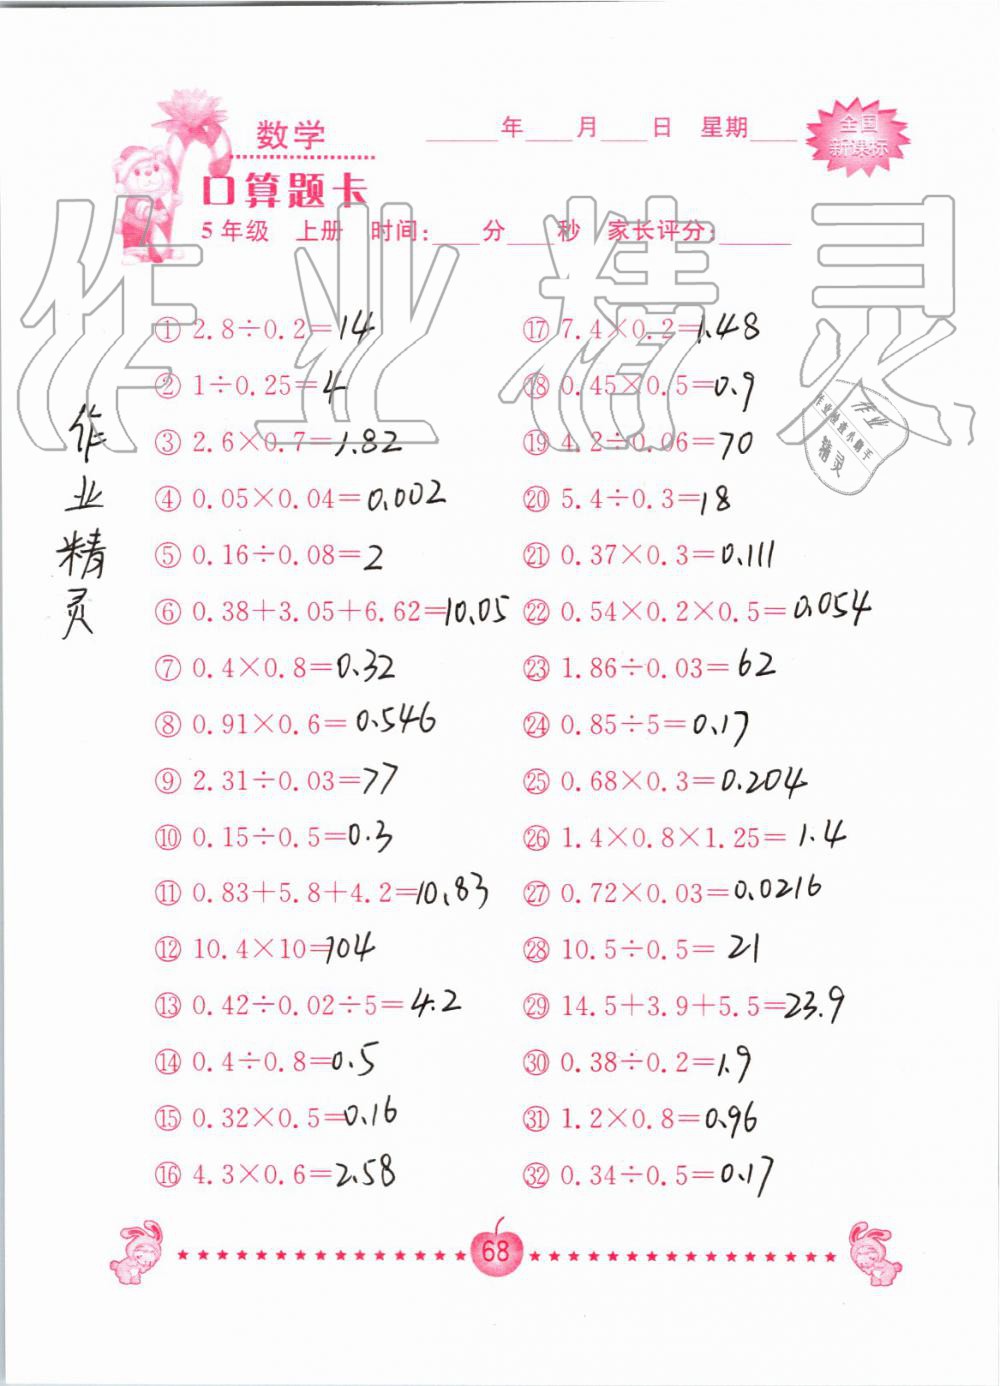 数学
年 月 日 星期
全国
新课标
口算题卡
5年级 上册 时间: 分 秒 家长评分:
作业精灵
① 2.8÷0.2=14
② 1÷0.25=4
③ 2.6×0.7=1.82
④ 0.05×0.04=0.002
⑤ 0.16÷0.08=2
⑥ 0.38+3.05+6.62=10.05
⑦ 0.4×0.8=0.32
⑧ 0.91×0.6=0.546
⑨ 2.31÷0.03=77
⑩ 0.15÷0.5=0.3
⑪ 0.83+5.8+4.2=10.83
⑫ 10.4×10=104
⑬ 0.42÷0.02÷5=4.2
⑭ 0.4÷0.8=0.5
⑮ 0.32×0.5=0.16
⑯ 4.3×0.6=2.58
⑰ 7.4×0.2=1.48
⑱ 0.45×0.5=0.9
⑲ 4.2÷0.06=70
⑳ 5.4÷0.3=18
㉑ 0.37×0.3=0.111
㉒ 0.54×0.2×0.5=0.054
㉓ 1.86÷0.03=62
㉔ 0.85÷5=0.17
㉕ 0.68×0.3=0.204
㉖ 1.4×0.8×1.25=1.4
㉗ 0.72×0.03=0.0216
㉘ 10.5÷0.5=21
㉙ 14.5+3.9+5.5=23.9
㉚ 0.38÷0.2=1.9
㉛ 1.2×0.8=0.96
㉜ 0.34÷0.5=0.17
作业精灵
作业
作业检查小助手
精灵
68